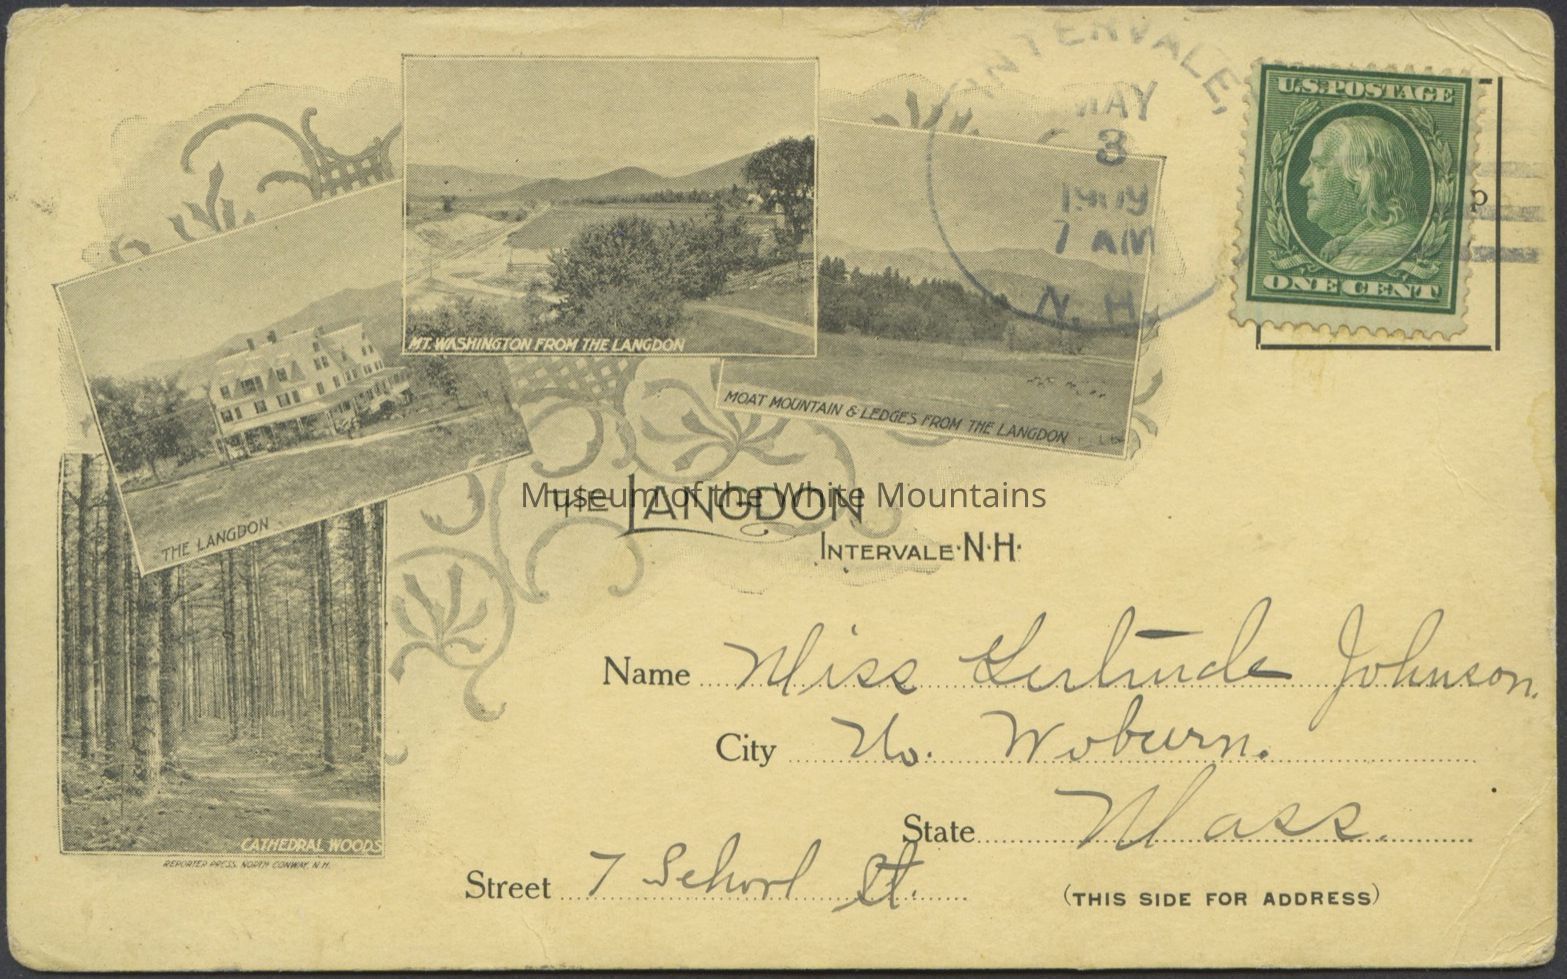 INTERVALE,
MAY
3
1909
7 AM
N.H.
U.S. POSTAGE
ONE CENT
p
MT. WASHINGTON FROM THE LANGDON
MOAT MOUNTAIN & LEDGES FROM THE LANGDON
THE LANGDON
THE LANGDON
Museum of the White Mountains
INTERVALE·N·H·
Name Miss Gertrude Johnson.
City No. Woburn.
State Mass.
Street 7 School St.
(THIS SIDE FOR ADDRESS)
CATHEDRAL WOODS
REPORTER PRESS, NORTH CONWAY, N.H.